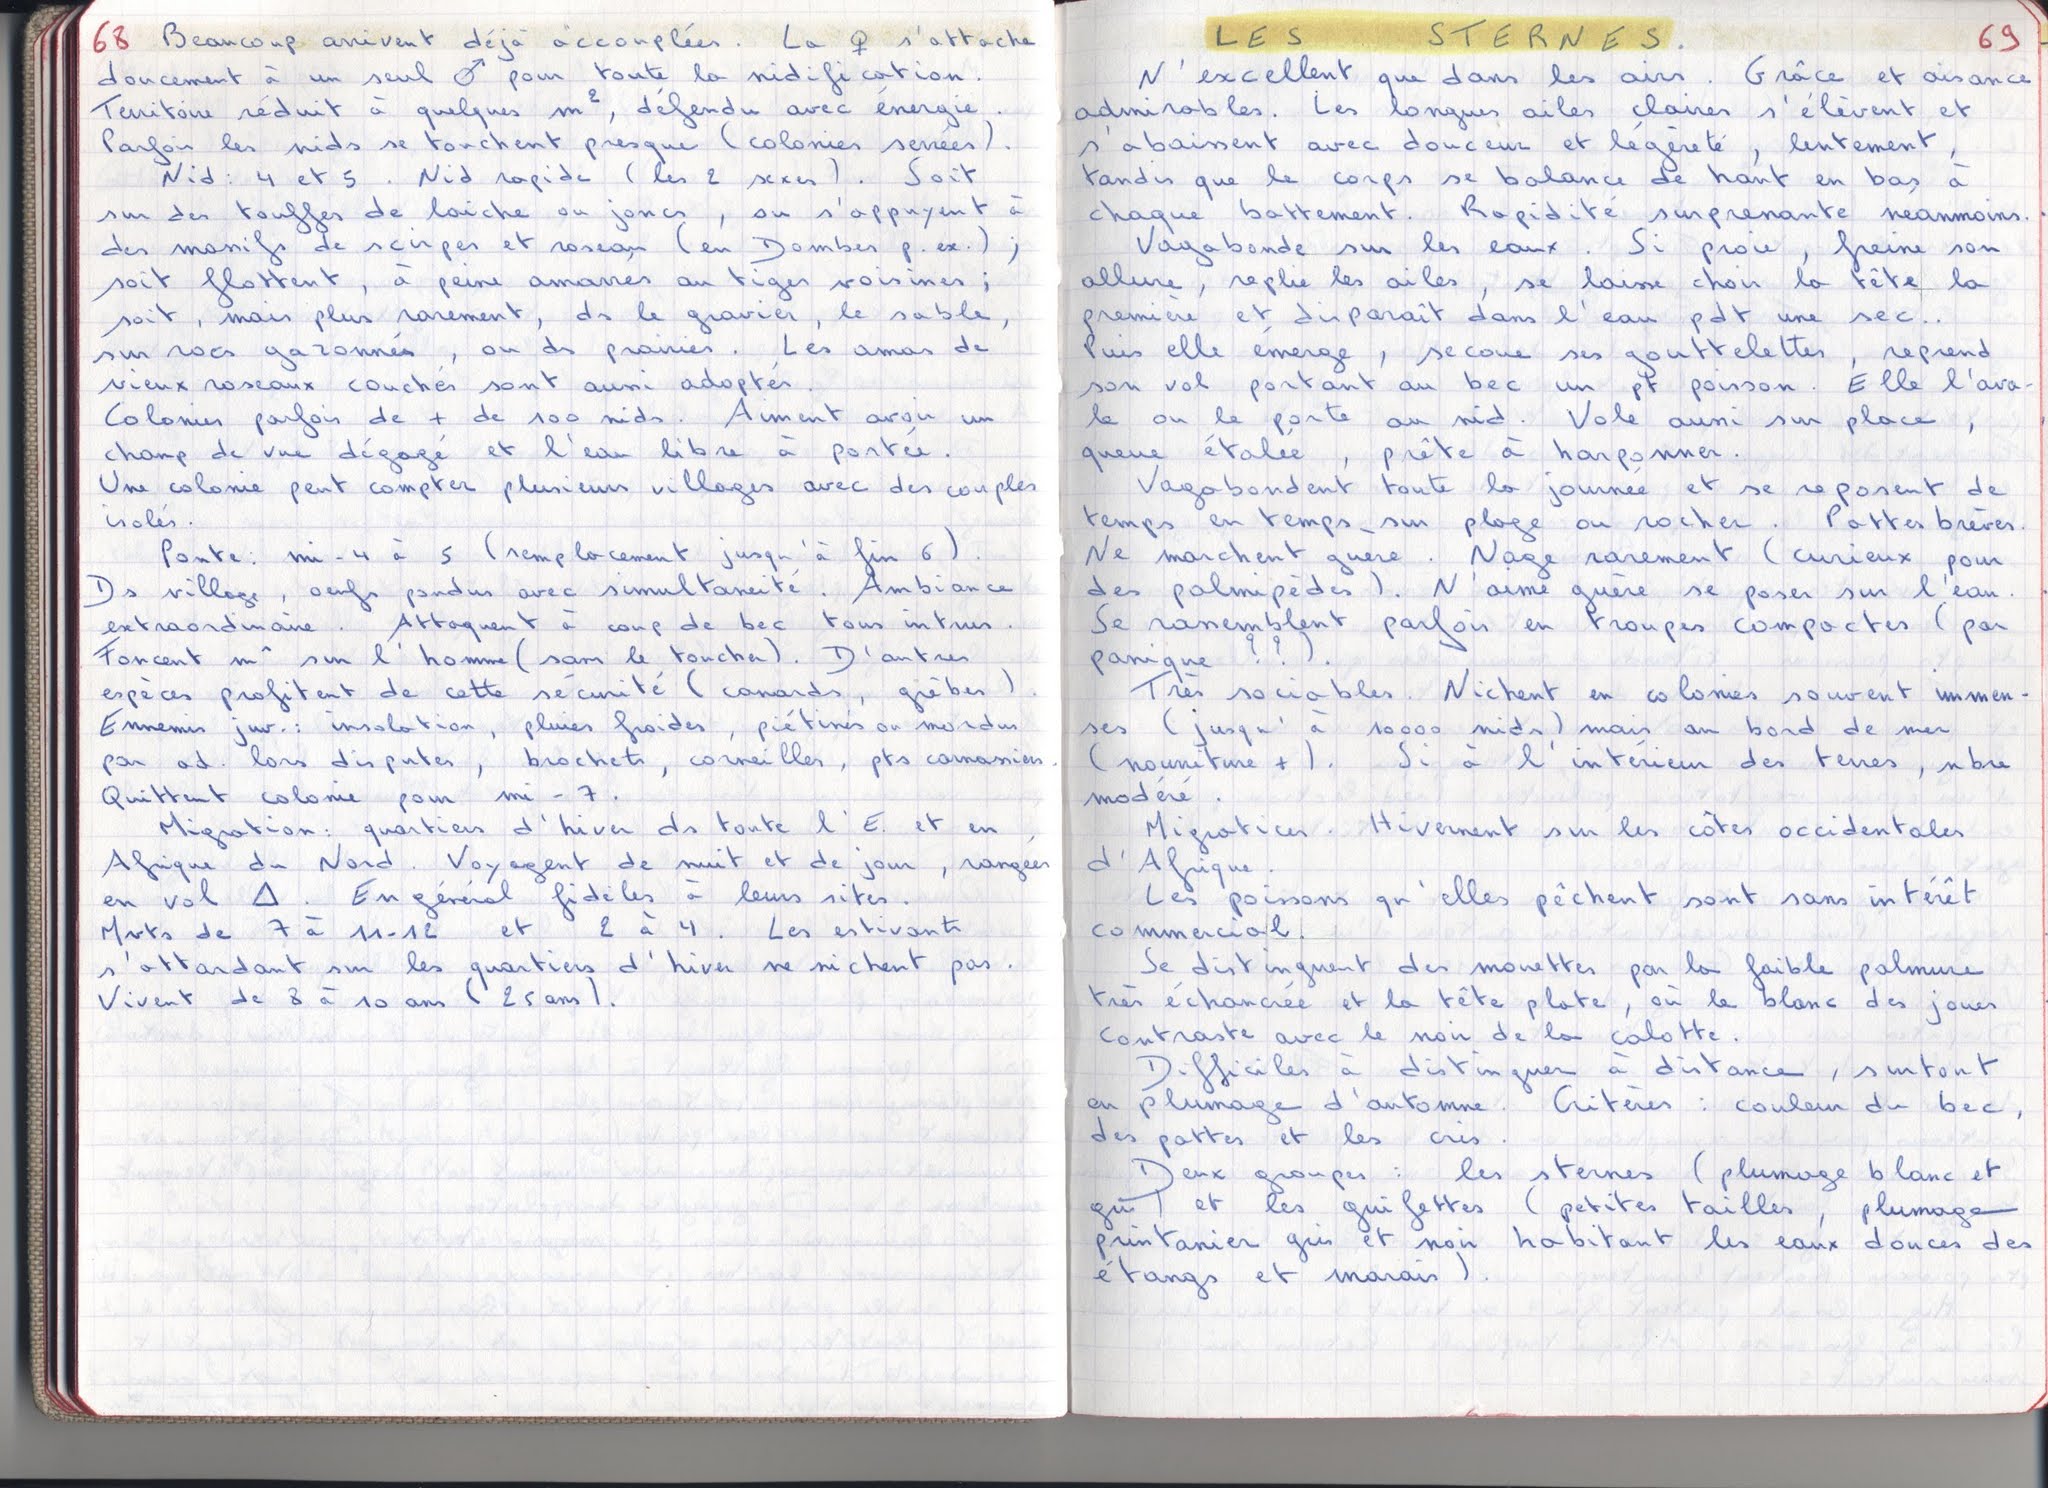 68 Beaucoup arrivent déjà accouplées. La ♀ s'attache
doucement à un seul ♂ pour toute la nidification.
Territoire réduit à quelques m², défendu avec énergie.
Parfois les nids se touchent presque (colonies serrées).
Nid: 4 et 5. Nid rapide (les 2 sexes). Soit
sur des touffes de laiche ou joncs, ou s'appuyent à
des massifs de scirpes et roseau (en Dombes p. ex.);
soit flottent, à peine amarrés au tiges voisines;
soit, mais plus rarement, ds le gravier, le sable,
sur rocs gazonnés, ou ds prairies. Les amas de
vieux roseaux couchés sont aussi adoptés.
Colonies parfois de + de 100 nids. Aiment avoir un
champ de vue dégagé et l'eau libre à portée.
Une colonie peut compter plusieurs villages avec des couples
isolés.
Ponte: mi-4 à 5 (remplacement jusqu'à fin 6).
Ds village, oeufs pondus avec simultanéité. Ambiance
extraordinaire. Attaquent à coup de bec tous intrus.
Foncent m^ sur l'homme (sans le toucher). D'autres
espèces profitent de cette sécurité (canards, grèbes).
Ennemis juv.: insolation, pluies froides, piétinés ou mordus
par ad. lors disputes, brochets, corneilles, pts carnassiers.
Quittent colonie pour mi-7.
Migration: quartiers d'hiver ds toute l'E. et en
Afrique du Nord. Voyagent de nuit et de jour, rangées
en vol Δ. En général fidèles à leurs sites.
Mvts de 7 à 11-12 et 2 à 4. Les estivants
s'attardant sur les quartiers d'hiver ne nichent pas.
Vivent de 8 à 10 ans (25 ans).
LES STERNES. 69
N'excellent que dans les airs. Grâce et aisance
admirables. Les longues ailes claires s'élèvent et
s'abaissent avec douceur et légèreté, lentement,
tandis que le corps se balance de haut en bas à
chaque battement. Rapidité surprenante neanmoins.
Vagabonde sur les eaux. Si proie, freine son
allure, replie les ailes, se laisse choir la tête la
première et disparaît dans l'eau pdt une sec..
Puis elle émerge, secoue ses gouttelettes, reprend
son vol portant au bec un pt poisson. Elle l'ava-
le ou le porte au nid. Vole aussi sur place,
queue étalée, prête à harponner.
Vagabondent toute la journée et se reposent de
temps en temps sur plage ou rocher. Pattes brèves.
Ne marchent guère. Nage rarement (curieux pour
des palmipèdes). N'aime guère se poser sur l'eau.
Se rassemblent parfois en troupes compactes (par
panique ??).
Très sociables. Nichent en colonies souvent immen-
ses (jusqu'à 10000 nids) mais au bord de mer
(nourriture +). Si à l'intérieur des terres, nbre
modéré.
Migratices. Hivernent sur les côtes occidentales
d'Afrique.
Les poissons qu'elles pêchent sont sans intérêt
commercial.
Se distinguent des mouettes par la faible palmure
très échancrée et la tête plate, où le blanc des joues
contraste avec le noir de la calotte.
Difficiles à distinguer à distance, surtout
en plumage d'automne. Critères: couleur du bec,
des pattes et les cris.
Deux groupes: les sternes (plumage blanc et
gris) et les guifettes (petites tailles, plumage
printanier gris et noir habitant les eaux douces des
étangs et marais).